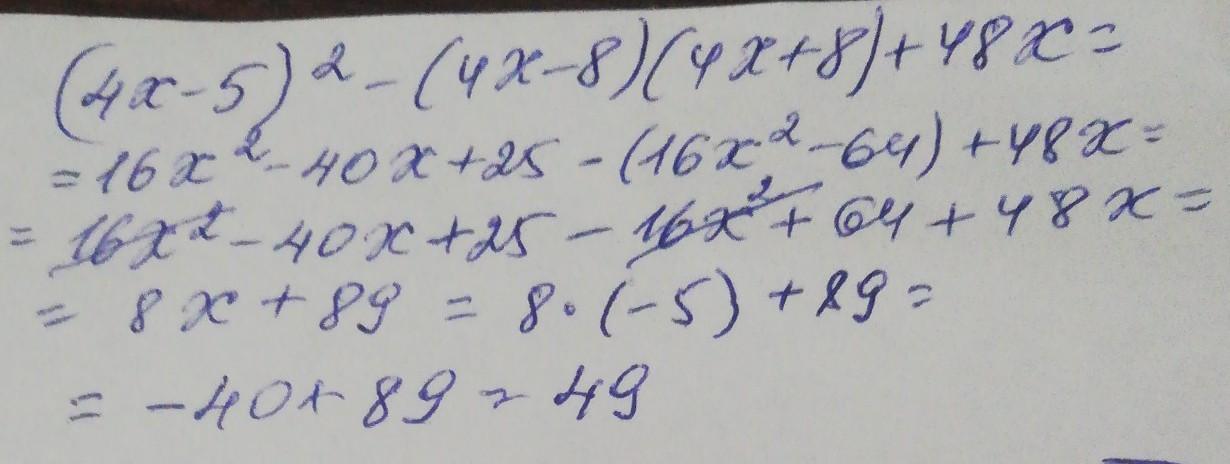 (4x-5)² - (4x-8)(4x+8)+48x=
=16x²-40x+25-(16x²-64)+48x=
= 16x²-40x+25-16x²+64+48x=
= 8x+89 = 8·(-5)+89=
= -40+89=49